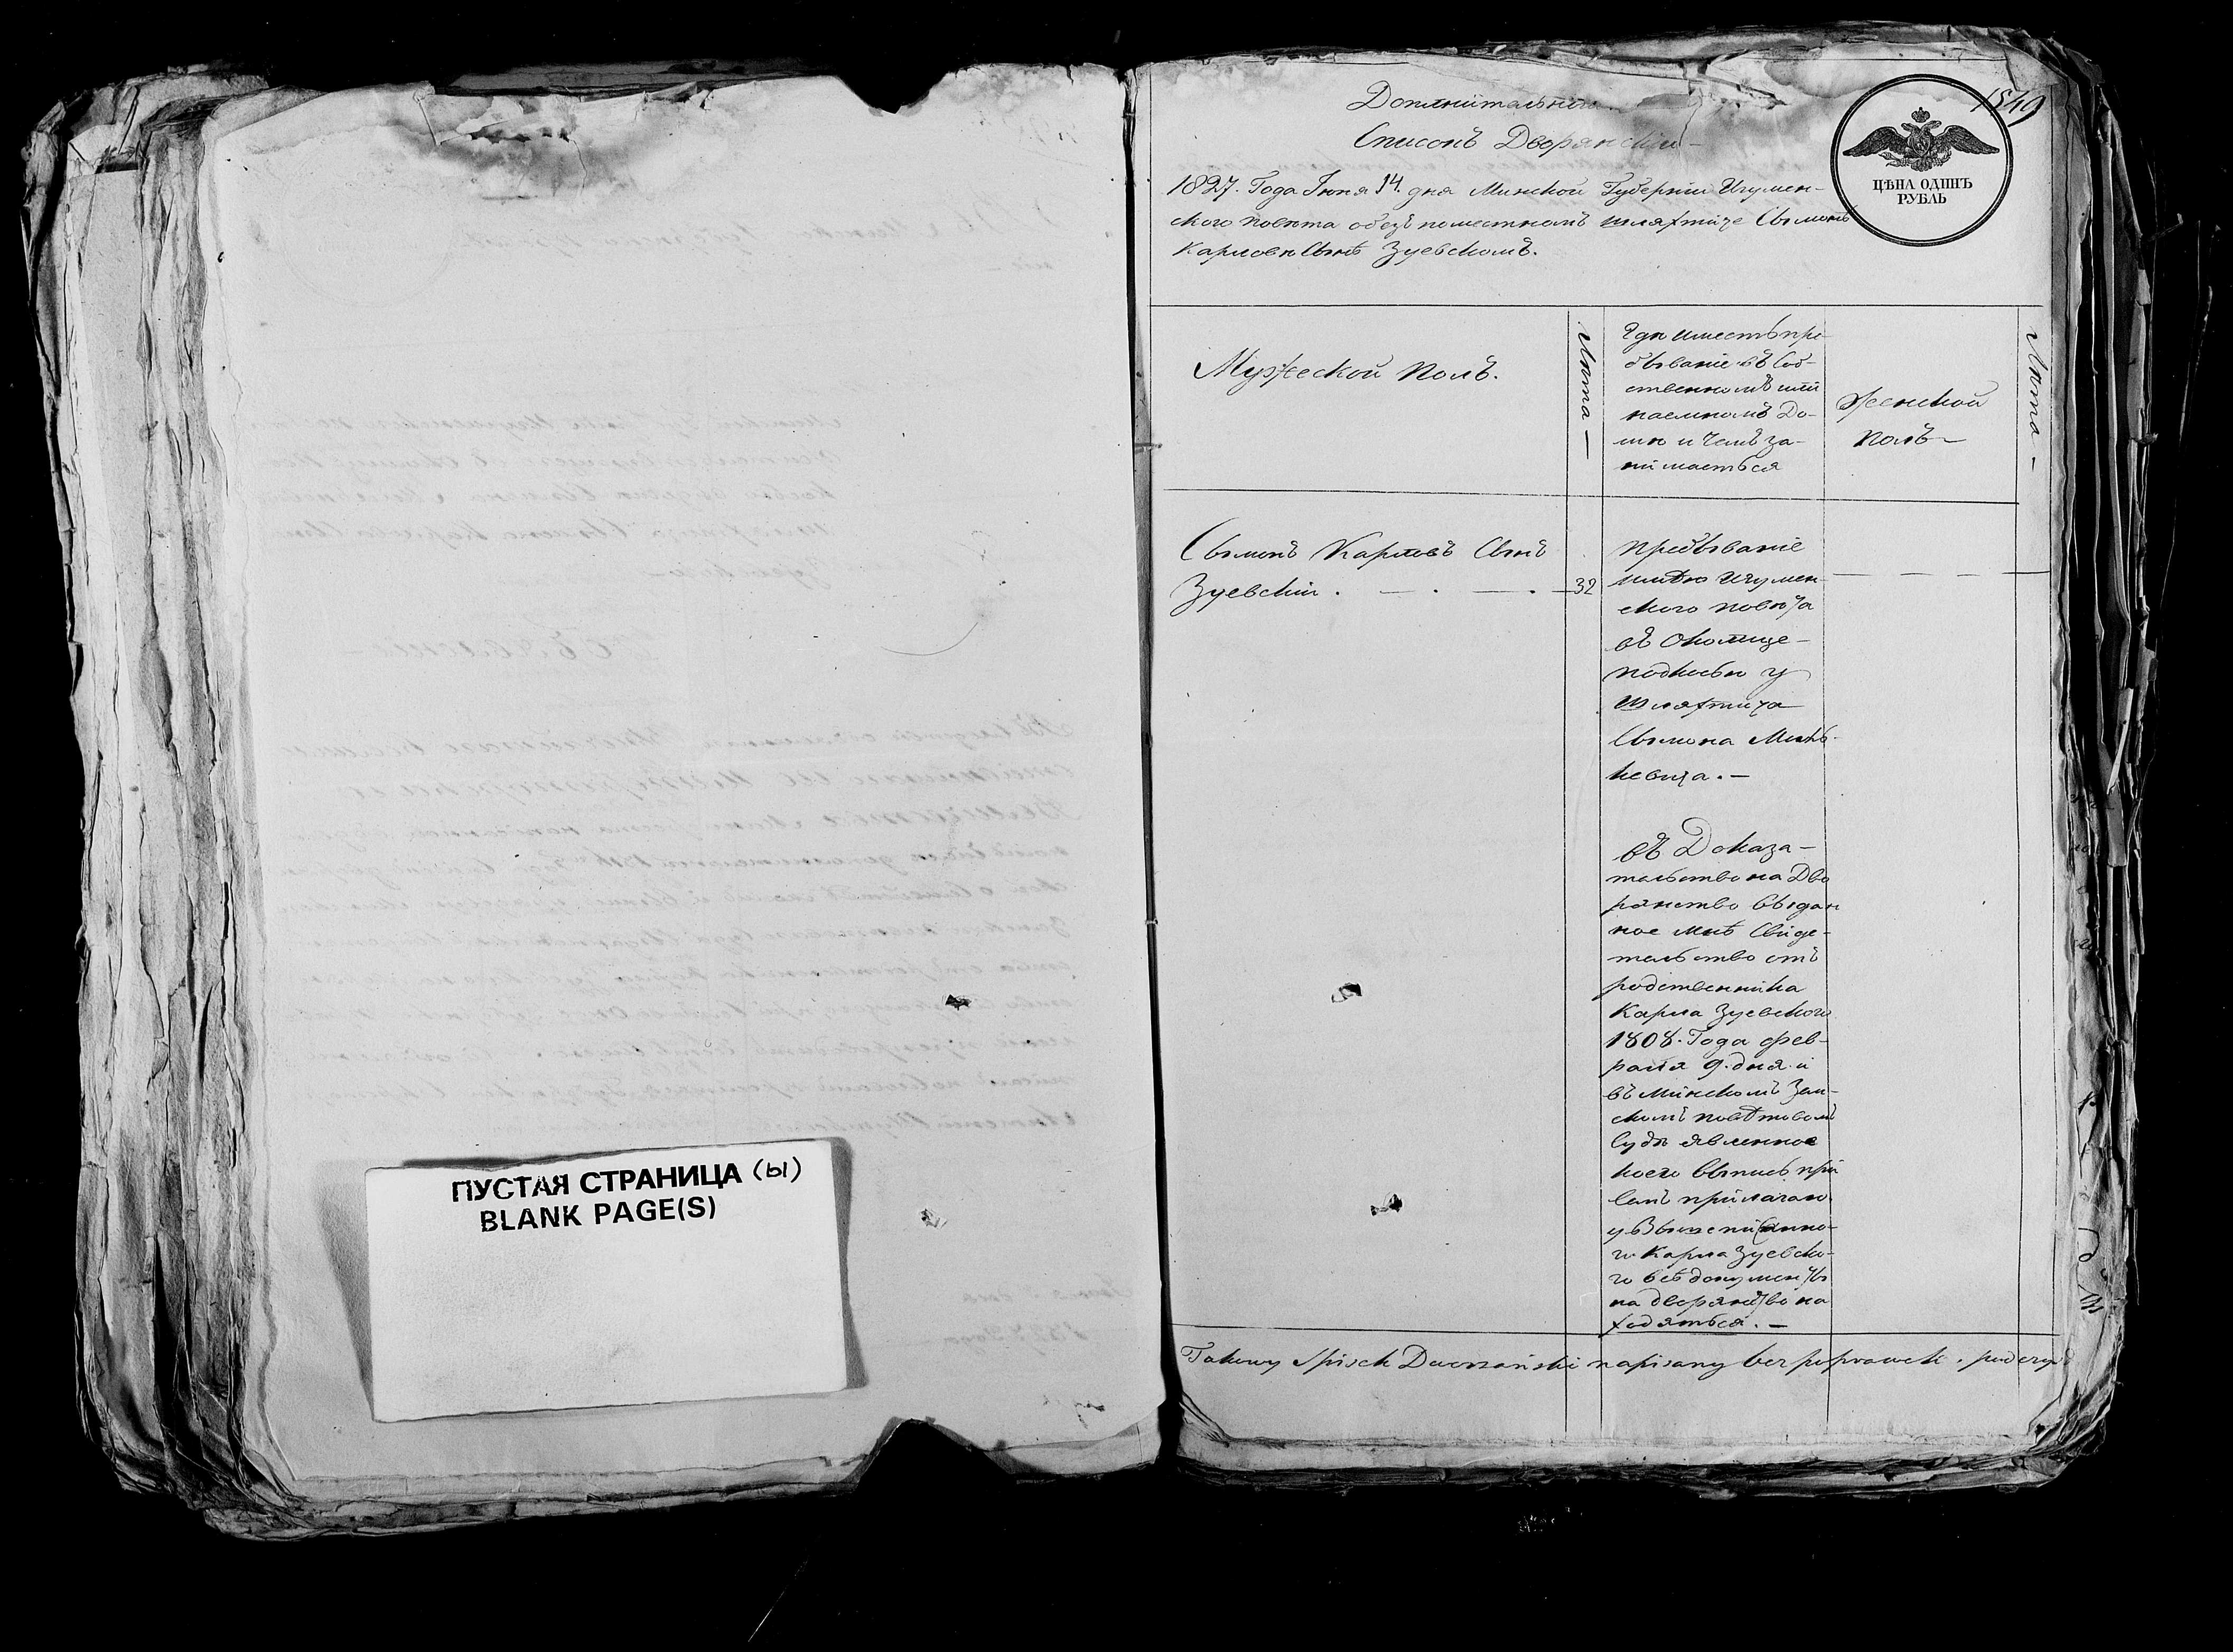 ПУСТАЯ СТРАНИЦА (ы)
BLANK PAGE(S)
1549
ЦѢНА ОДИНЪ
РУБЛЬ
Списокъ Дворянскій
1827. Года Іюня 14. дня Минской Губерніи Игумен-
ского повѣта обезъ поместномъ шляхтиче Сымонѣ
Карловѣ Сынѣ Зуевскомъ.
Мужеской Полъ.
Лѣта —
Гдѣ иместь пре-
бываніе въ Соб-
ственномъ или
наемномъ До-
мѣ и Чемъ за-
нимаеться
Женской
Полъ —
Лѣта —
Сымонъ Карловъ Сынъ
Зуевскій . — . — . — 32
Пребываніе
имѣю Игумен-
ского повѣта
въ Околице —
у
Шляхтича
Сымона Минь-
кевича. —
въ Доказа-
тельство на Дво
рянство выдан
ное мнѣ Свиде-
тельство отъ
родственника
Карла Зуевского
1808. Года фев-
раля 9. дня и
въ Минскомъ Зем-
скомъ повѣтовомъ
Судѣ явленное
коего выпись при
семъ прилагаю
у Вышеписанно-
го Карла Зуевско-
го всѣ документы
на дворянство на
ходяться. —
Takowy Spisek Dworzański napisany bez poprawek